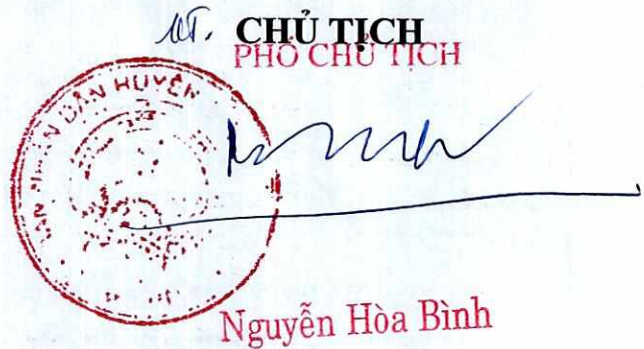 KT. CHỦ TỊCH
PHÓ CHỦ TỊCH
BAN NHÂN DÂN HUYỆN
Nguyễn Hòa Bình